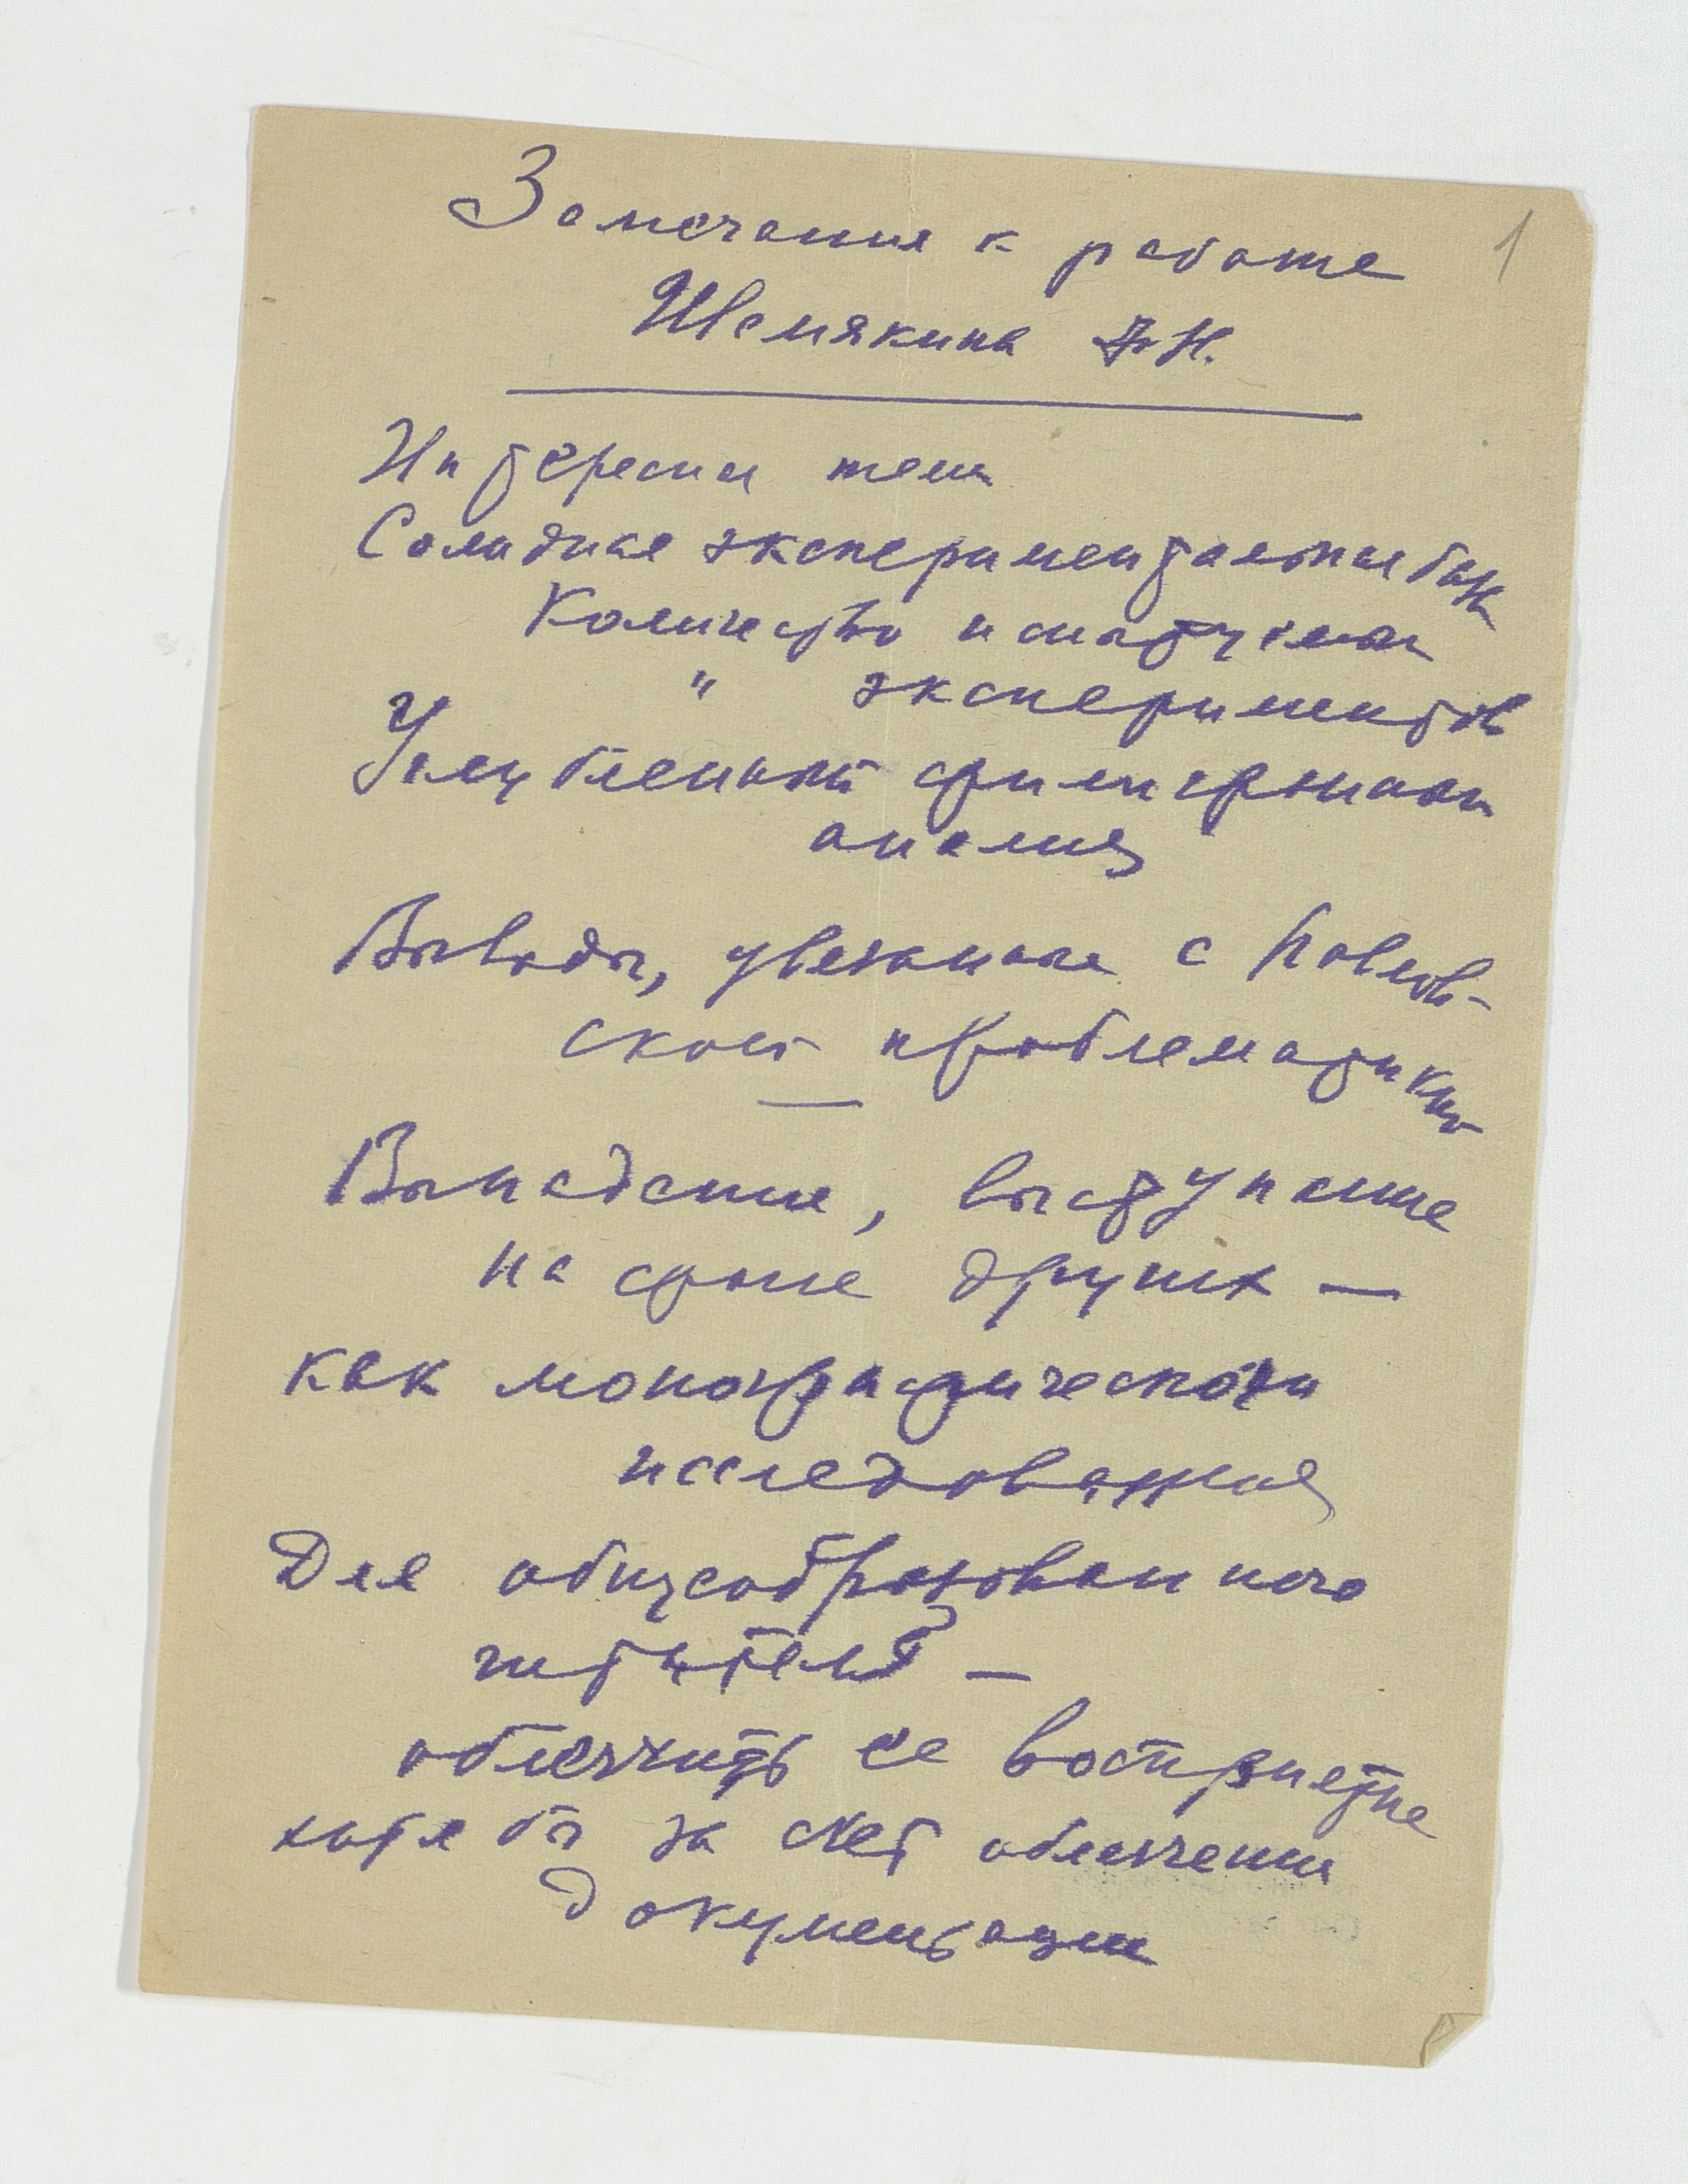 Замечания к работе
1
Шемякина Ф.Н.
Интересная тема
Солидная экспериментальная база
Количество испытуемых
" экспериментов
Углубленный
анализ
Выводы, увязанные с Павлов-
ской проблематикой
Выпадение, выступание
на фоне других —
как монографического
исследования
Для общеобразованного
читателя —
облегчить ее восприятие
хотя бы за счет облегчения
документации